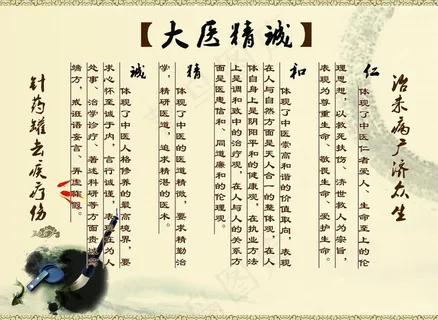 【大医精诚】
治未病广济众生
仁
体现了中医仁者爱人、生命至上的伦
理思想，以救死扶伤、济世救人为宗旨，
表现为尊重生命、敬畏生命、爱护生命。
和
体现了中医崇高和谐的价值取向，表现
在人与自然方面是天人合一的整体观，在人
体自身上是阴阳平和的健康观，在执业方法
上是调和致中的治疗观，在人与人的关系方
面是医患信和、同道廉和的伦理观。
精
体现了中医的医道精微，要求精勤治
学，精研医道，追求精湛的医术。
诚
体现了中医人格修养的最高境界，要
求心怀至诚于内，言行诚谨，表现在为人
处事、治学诊疗、著述科研等方面贵诚
端方，戒诳语妄言、弄虚
针药罐去疾疗伤